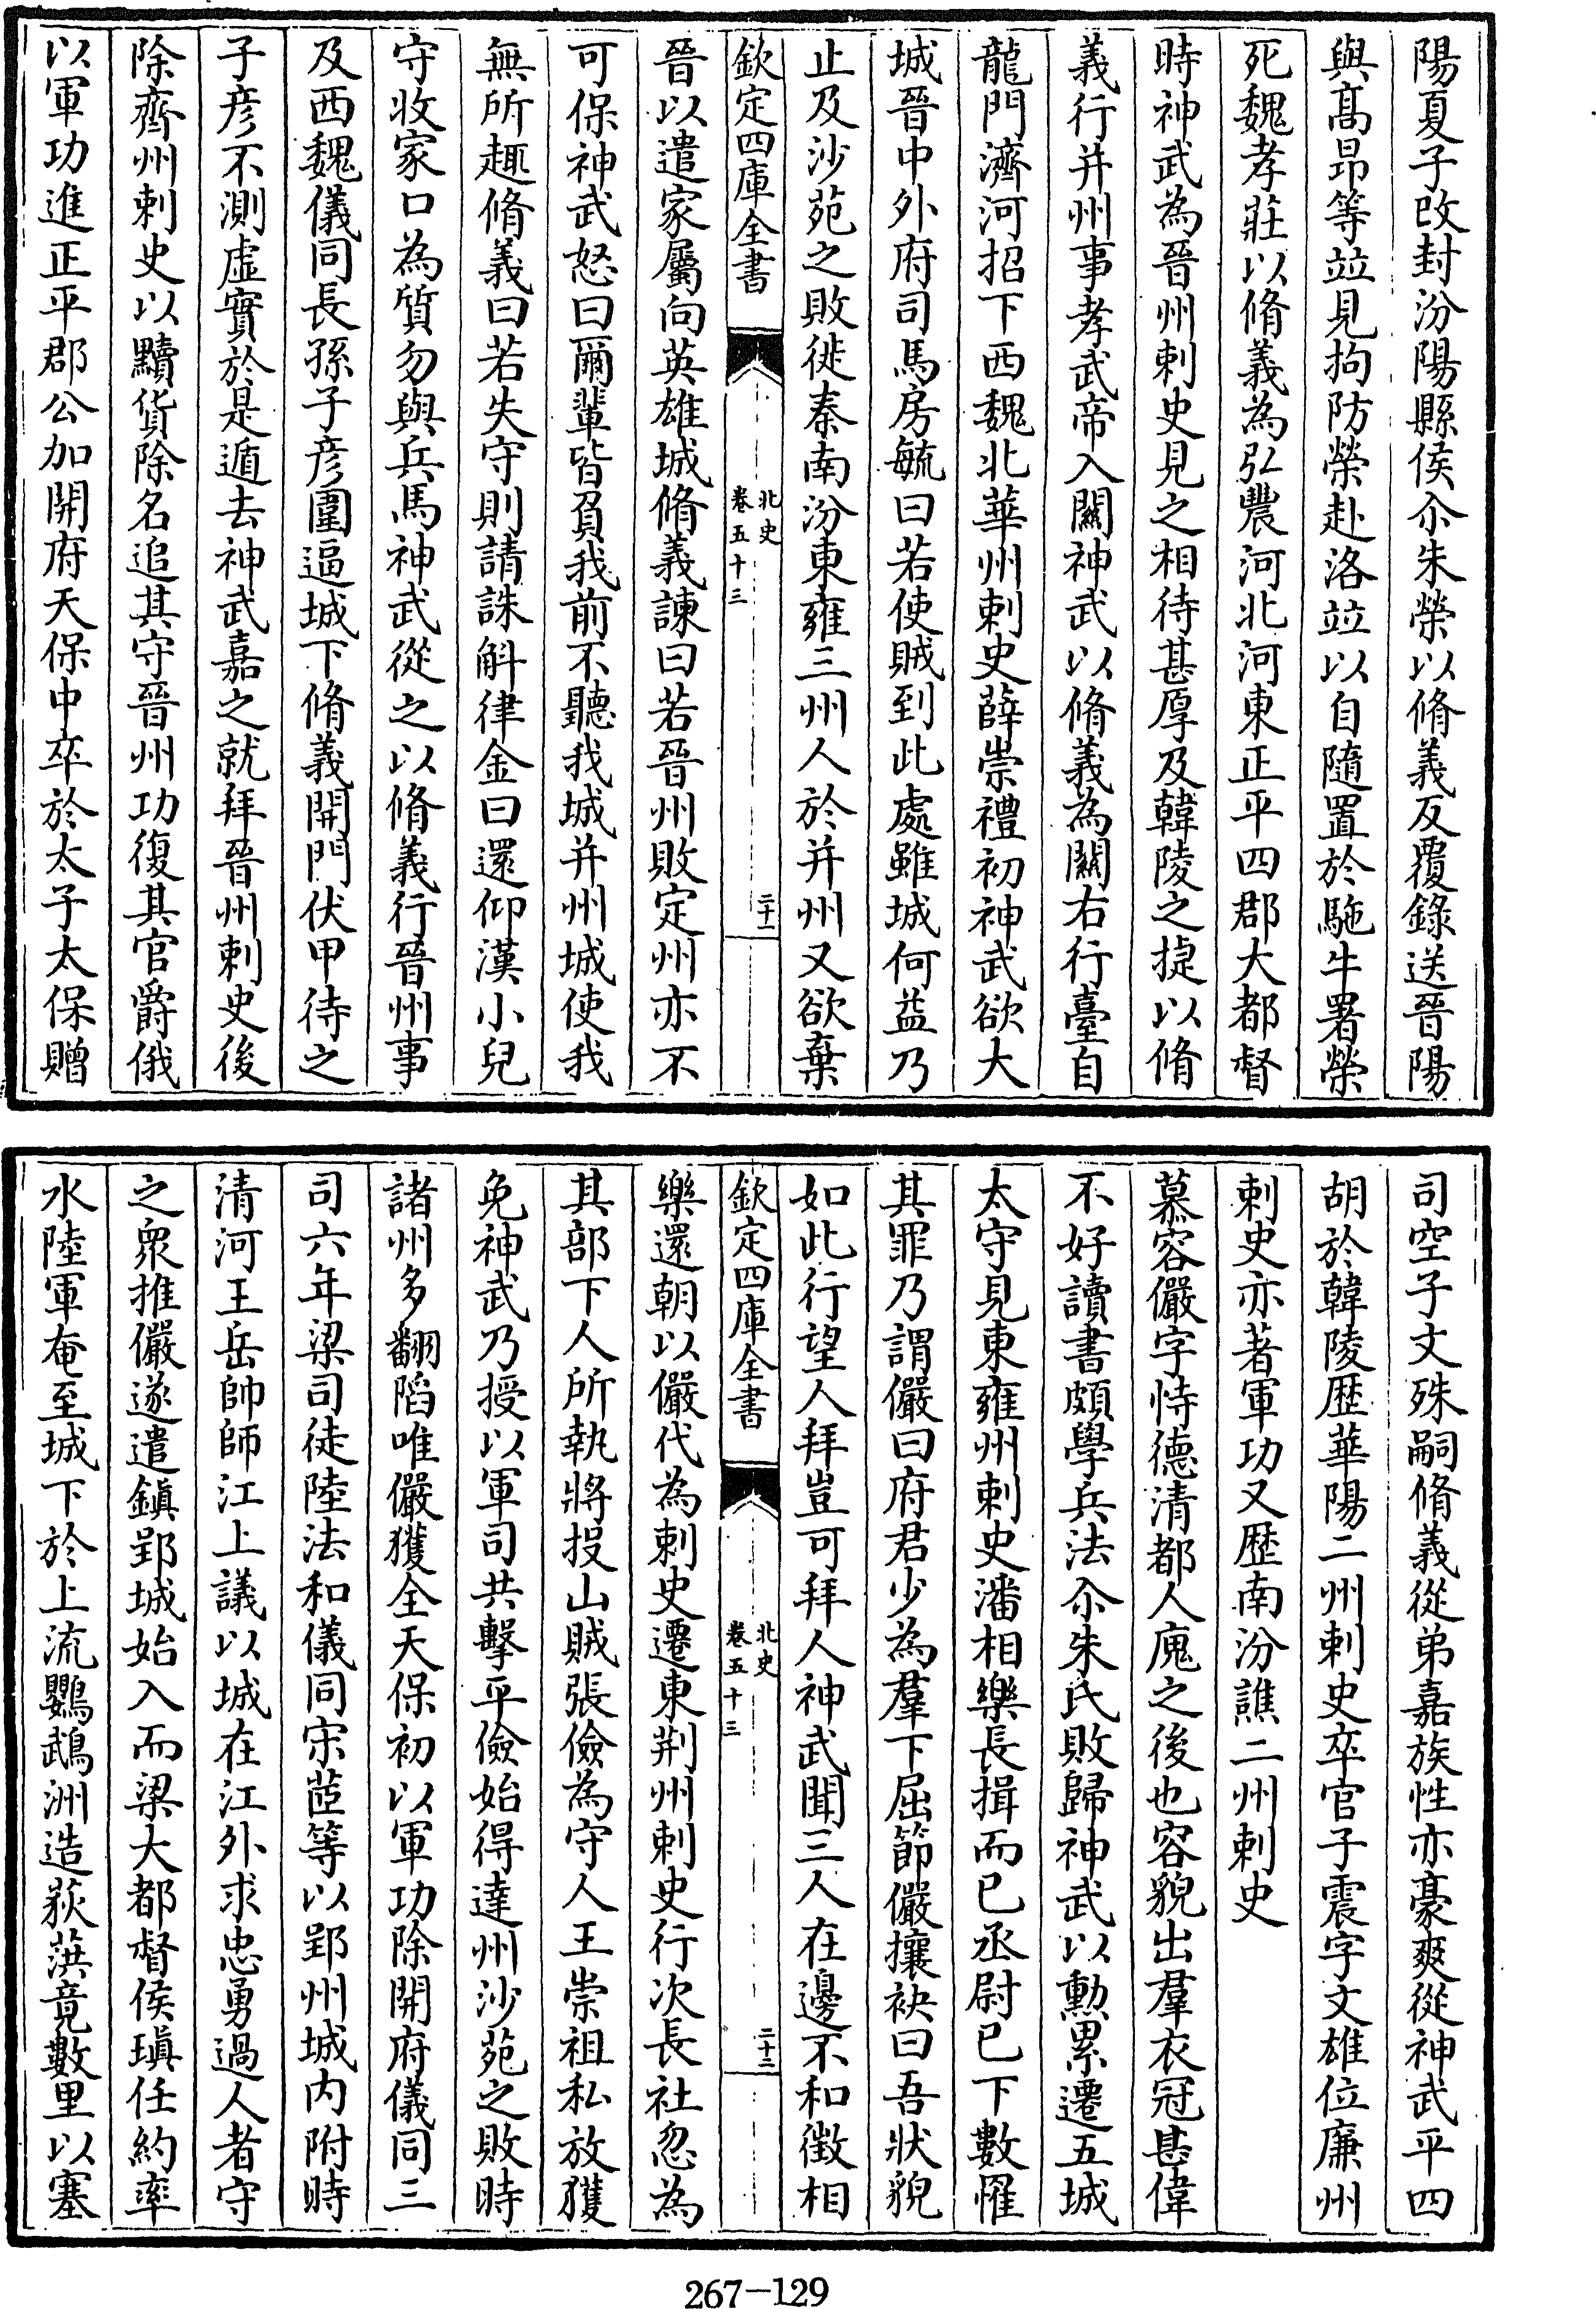 陽夏子改封汾陽縣侯尒朱榮以脩義反覆錄送晉陽
與髙昂等竝見拘防榮赴洛竝以自隨置於駞牛署榮
死魏孝莊以脩義為弘農河北河東正平四郡大都督
時神武為晉州刺史見之相待甚厚及韓陵之捷以脩
義行并州事孝武帝入關神武以脩義為關右行臺自
龍門濟河招下西魏北華州刺史薛崇禮初神武欲大
城晉中外府司馬房毓曰若使賊到此處雖城何益乃
止及沙苑之敗徙秦南汾東雍三州人於并州又欲棄
欽定四庫全書
北史
卷五十三
二十一
晉以遣家屬向英雄城脩義諫曰若晉州敗定州亦不
可保神武怒曰爾輩皆負我前不聽我城并州城使我
無所趣脩義曰若失守則請誅斛律金曰還仰漢小兒
守收家口為質勿與兵馬神武從之以脩義行晉州事
及西魏儀同長孫子彦圍逼城下脩義開門伏甲待之
子彦不測虛實於是遁去神武嘉之就拜晉州刺史後
除齊州刺史以黷貨除名追其守晉州功復其官爵俄
以軍功進正平郡公加開府天保中卒於太子太保贈
司空子文殊嗣脩義從弟嘉族性亦豪爽從神武平四
胡於韓陵歴華陽二州刺史卒官子震字文雄位廉州
刺史亦著軍功又歴南汾譙二州刺史
慕容儼字恃德清都人廆之後也容貌出羣衣冠甚偉
不好讀書頗學兵法尒朱氏敗歸神武以勲累遷五城
太守見東雍州刺史潘相樂長揖而已丞尉已下數罹
其罪乃謂儼曰府君少為羣下屈節儼攘袂曰吾狀貌
如此行望人拜豈可拜人神武聞三人在邊不和徵相
欽定四庫全書
北史
卷五十三
二十二
樂還朝以儼代為刺史遷東荆州刺史行次長社忽為
其部下人所執將投山賊張儉為守人王崇祖私放獲
免神武乃授以軍司共擊平儉始得達州沙苑之敗時
諸州多翻䧟唯儼獲全天保初以軍功除開府儀同三
司六年梁司徒陸法和儀同宋茝等以郢州城内附時
清河王岳帥師江上議以城在江外求忠勇過人者守
之衆推儼遂遣鎮郢城始入而梁大都督侯瑱任約率
水陸軍奄至城下於上流鸚鵡洲造荻葓竟數里以塞
267-129